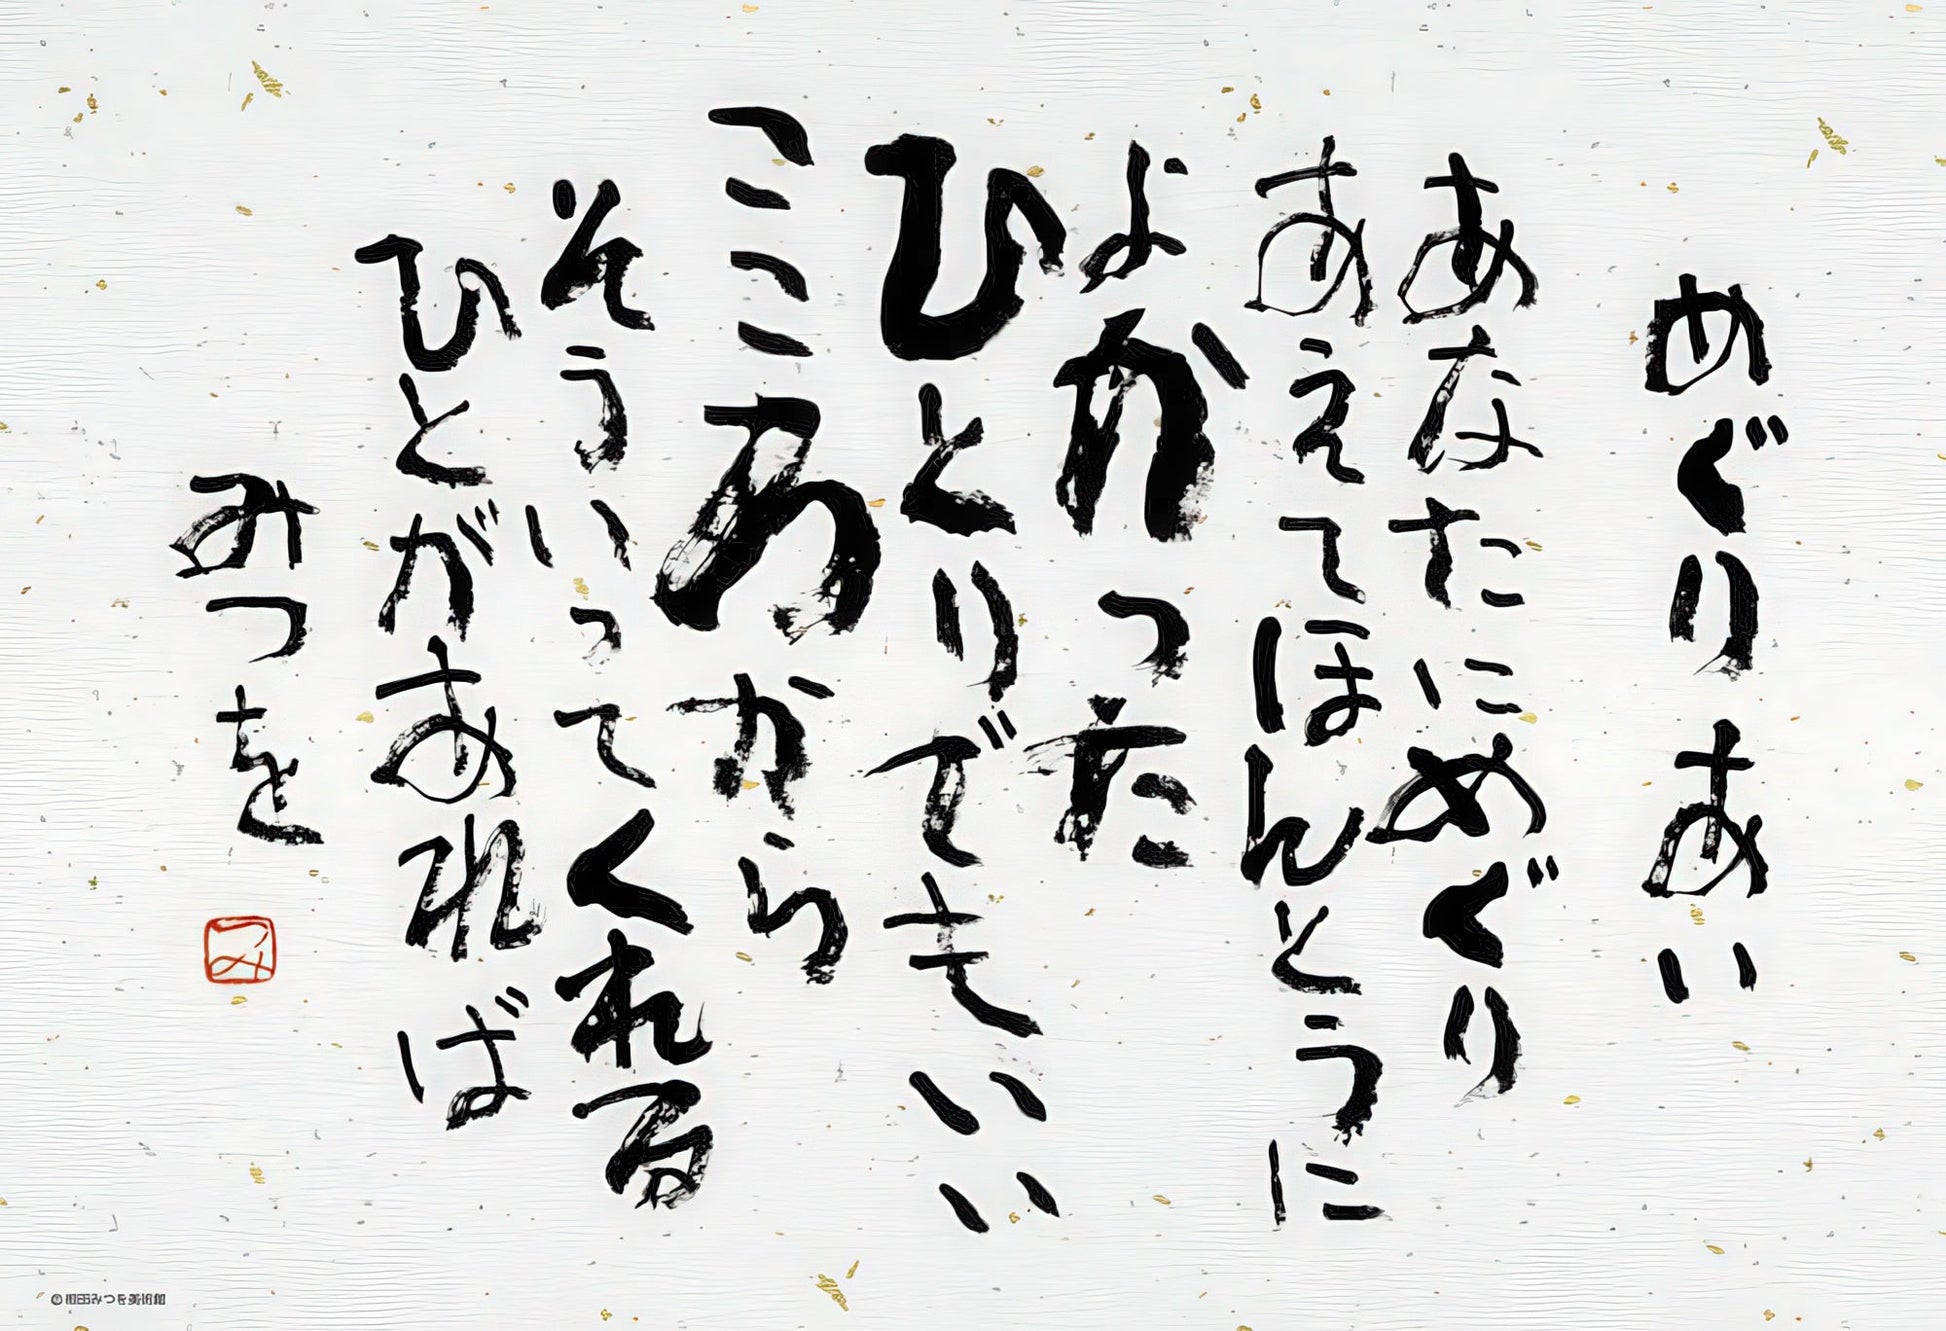 めぐりあい
あなたにめぐり
あえてほんとうに
よかった
ひとりでもいい
こころから
そういってくれる
ひとがあれば
みつを
つみ
©相田みつを美術館